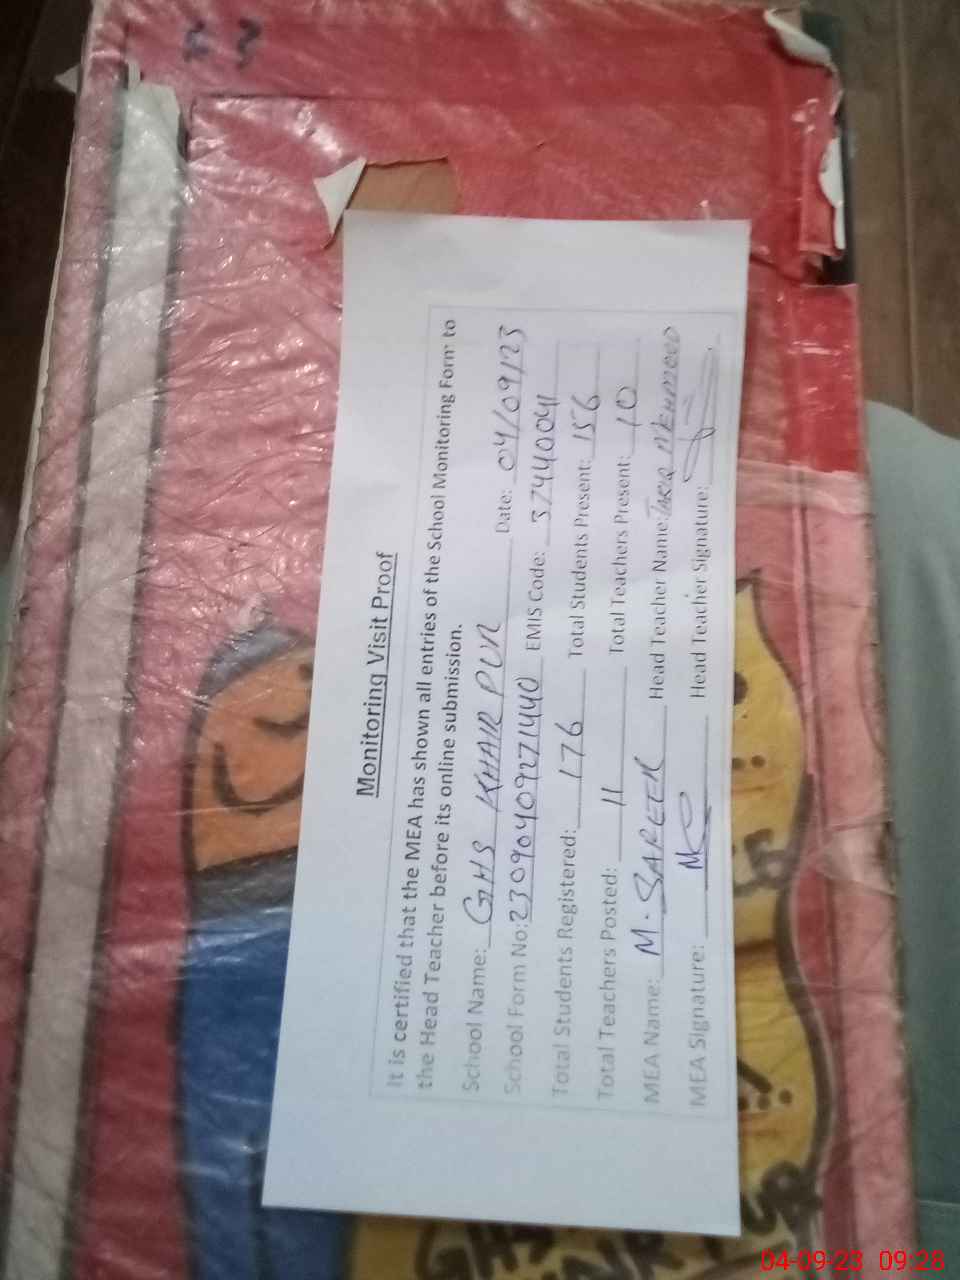 Monitoring Visit Proof
It is certified that the MEA has shown all entries of the School Monitoring Form to
the Head Teacher before its online submission.
School Name: GHS KHAIR PUR Date: 04/09/23
School Form No: 23090409271440 EMIS Code: 37440041
Total Students Registered: 176 Total Students Present: 156
Total Teachers Posted: 11 Total Teachers Present: 10
MEA Name: M. SAREER Head Teacher Name: TARIQ MEHMOOD
MEA Signature: Head Teacher Signature:
GHS
04-09-23 09:28